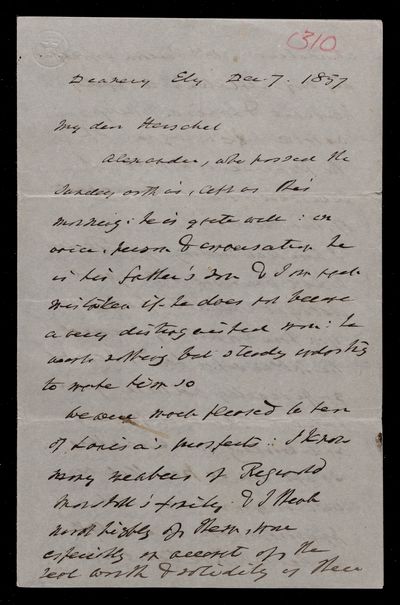 310
Deanery Ely Dec. 7. 1857
My dear Herschel
Alexander, who passed the
Sunday with us, left us this
morning: he is quite well: in
voice, person & conversation he
is his father's son & I am much
mistaken if he does not become
a very distinguished man: he
wants nothing but steady industry
to make him so
We were much pleased to hear
of Louisa's prospects: I know
many members of Reginald
Marshall's family & I think
most highly of them, more
especially on account of the
real worth & solidity of their